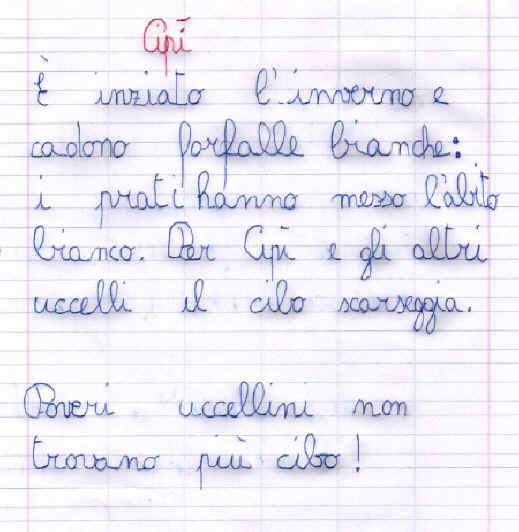 Cipì
È inziato l'inverno e
cadono farfalle bianche:
i prati hanno messo l'abito
bianco. Per Cipì e gli altri
uccelli il cibo scarseggia.
Poveri uccellini non
trovano più cibo!